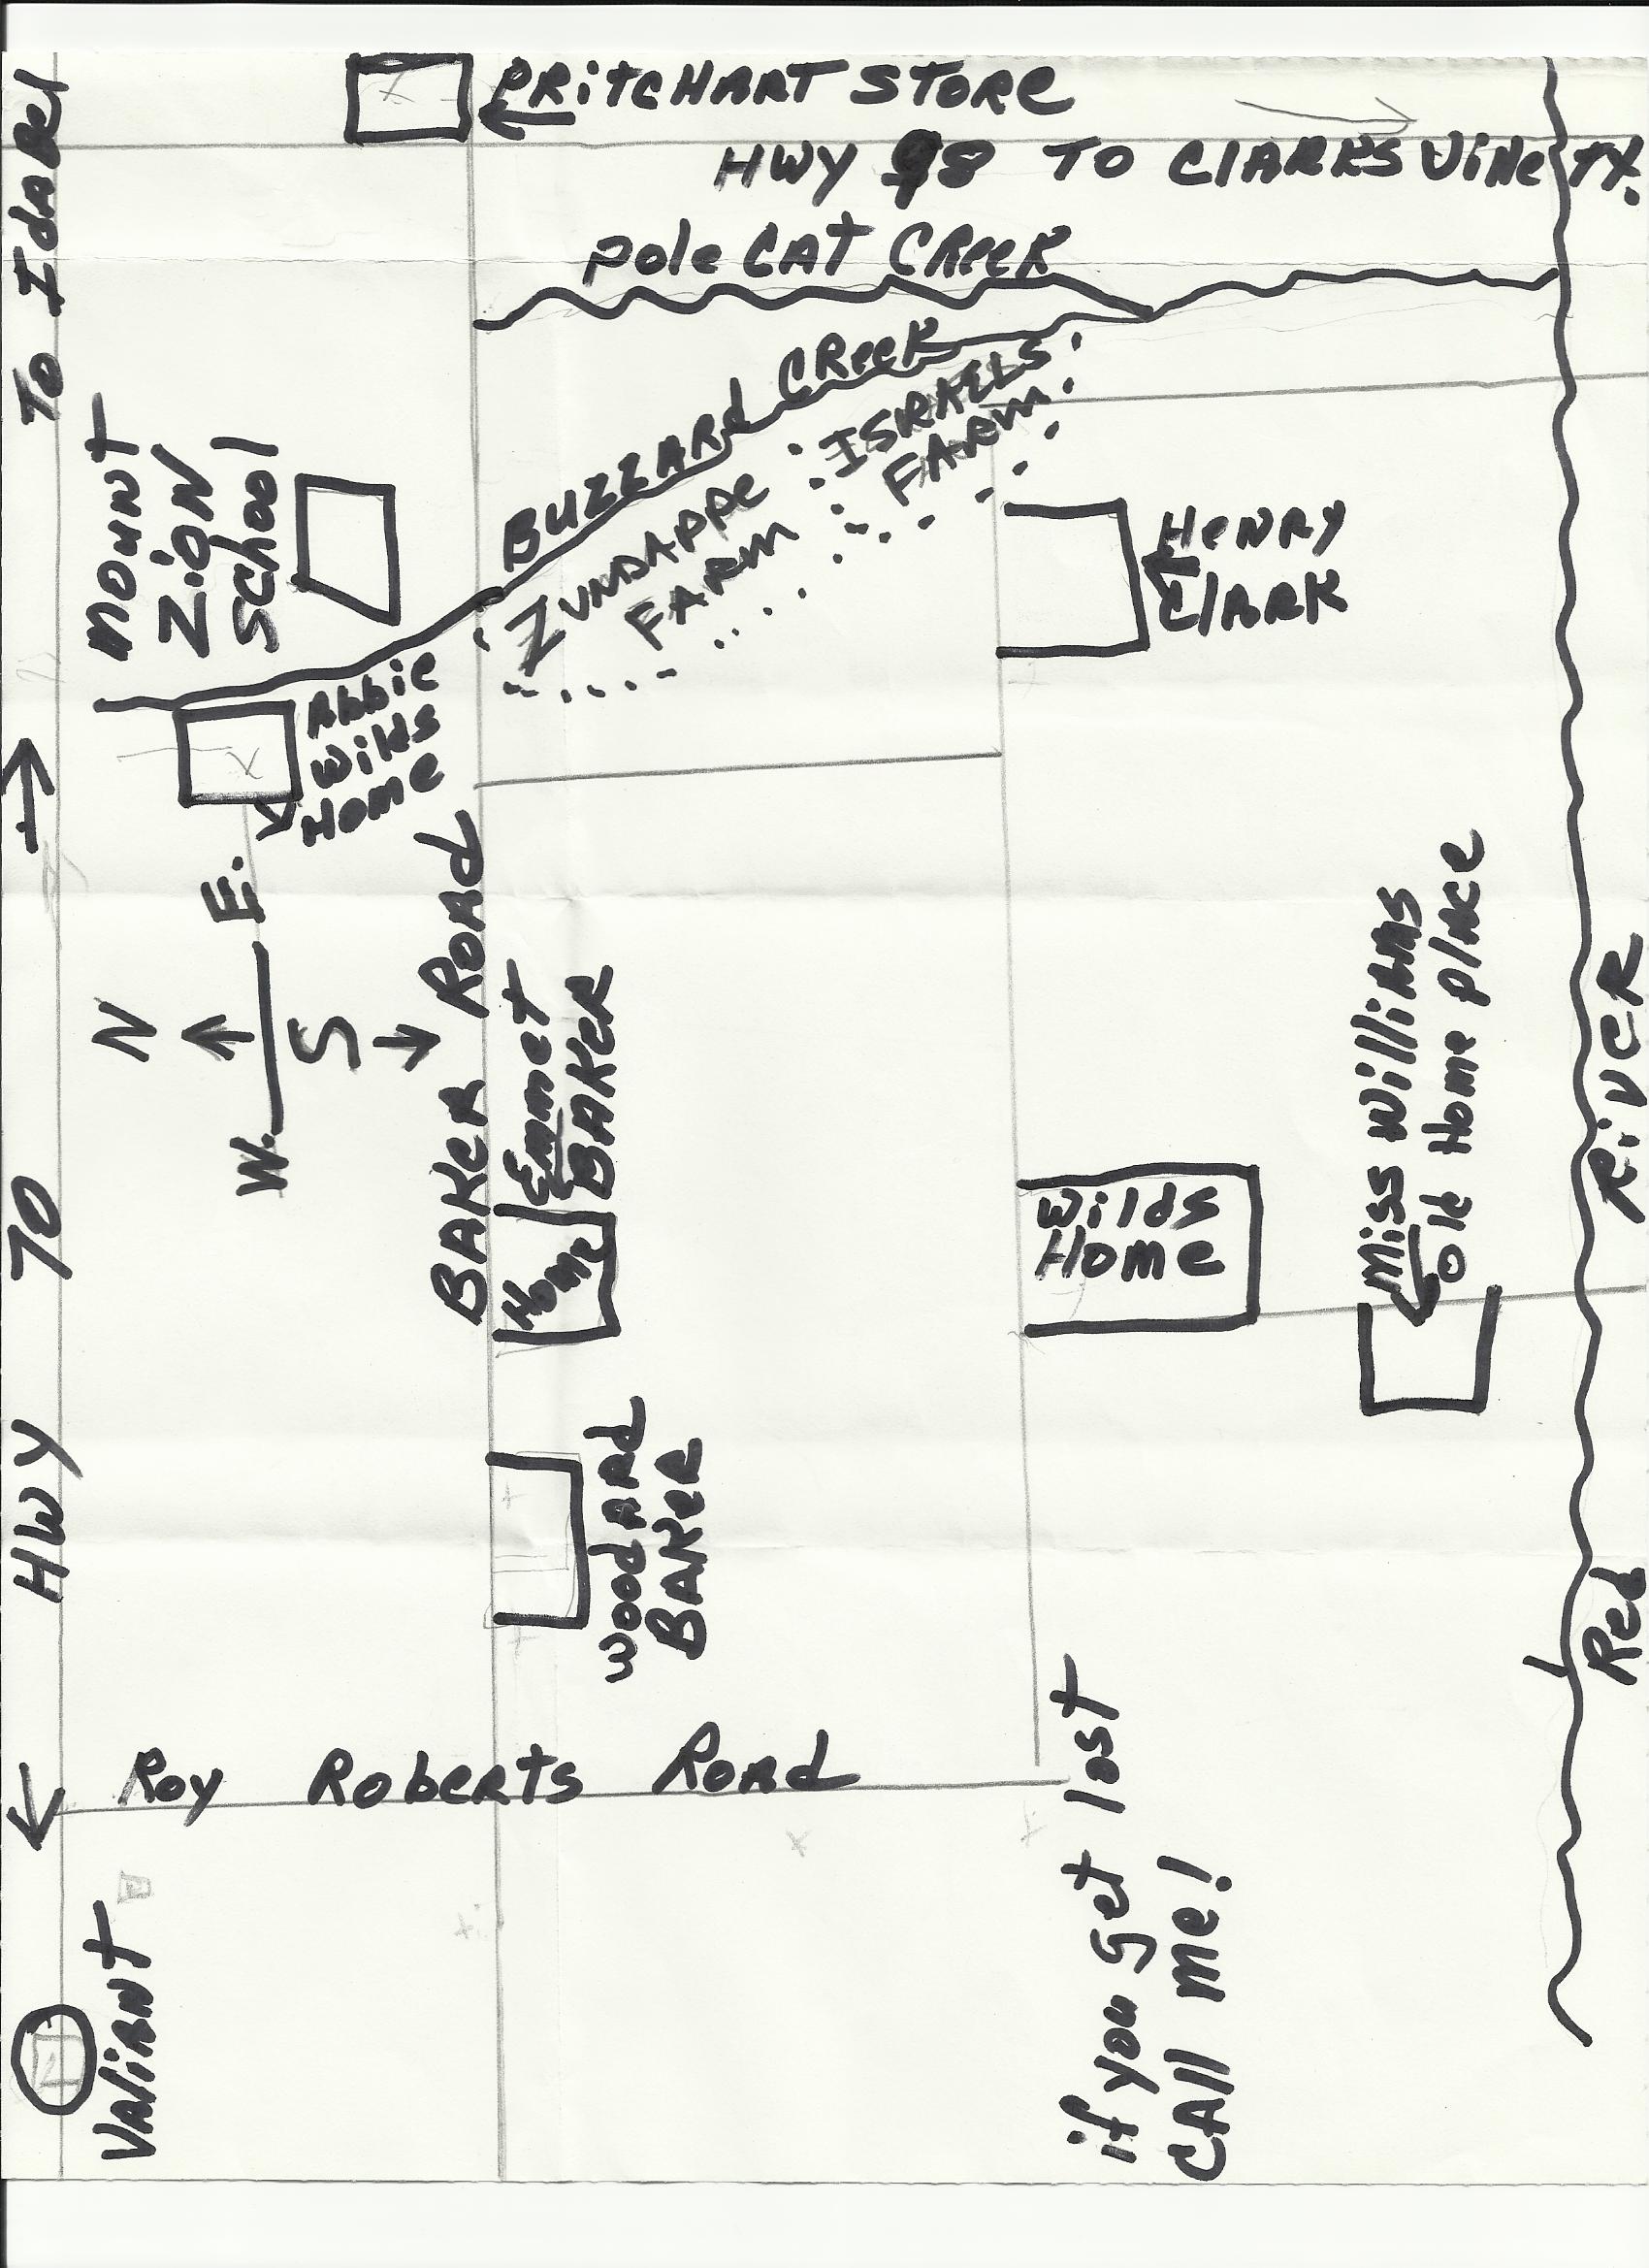 To IdABel
PRitCHART STORE
HWY 98 TO ClARKSVille TX.
Pole CAT CReeK
BUZZARd CReeK
ISRAELS
FARM
ZUNDAPPe
FARM
Mount
ZiON
School
HeNRY
ClARK
Abbie
Wilds
Home
N
W.
E.
S
BAKeR ROAd
Emmet
BAKeR
Home
Wilds
Home
Miss Williams
old Home plAce
Red RiveR
HWY 70
WoodARd
BAKeR
Roy Roberts Road
VAliANT
if you get lost
CAll me!